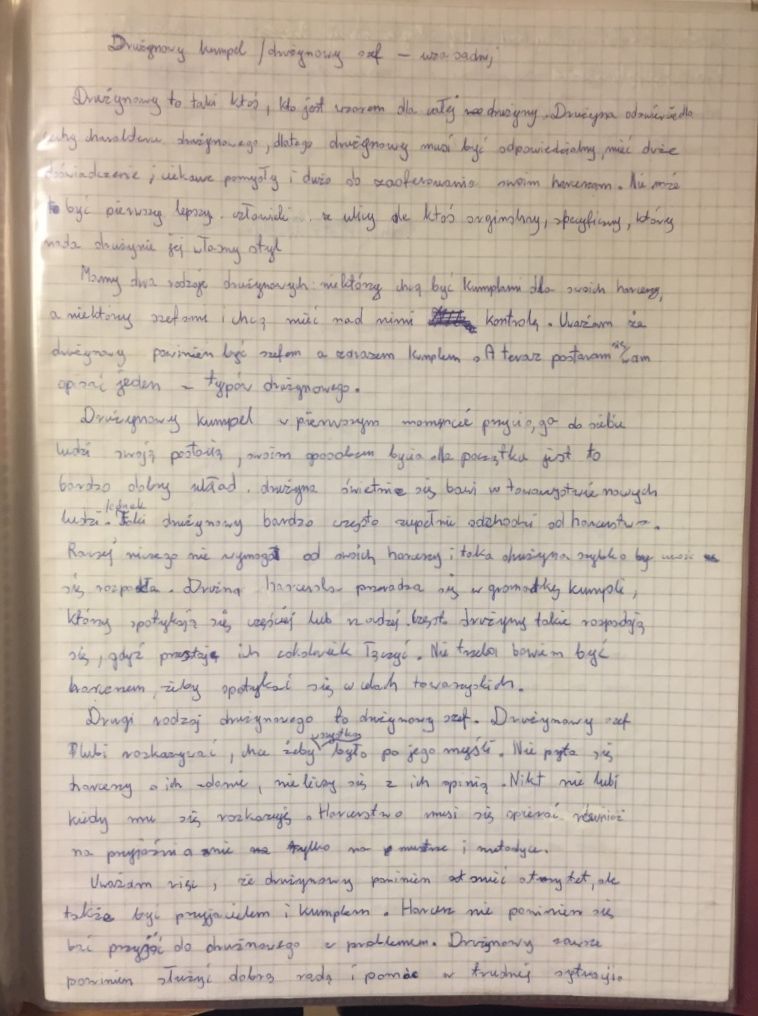 Drużynowy kumpel / drużynowy szef – uzasadnij
Drużynowy to taki ktoś, kto jest wzorem dla całej drużyny. Drużyna odzwierciedla
cechy charakteru drużynowego, dlatego drużynowy musi być odpowiedzialny, mieć duże
doświadczenie, ciekawe pomysły i dużo do zaoferowania swoim harcerzom. Nie może
to być pierwszy lepszy człowiek z ulicy ale ktoś oryginalny, specyficzny, który
nada drużynie jej własny styl
Mamy dwa rodzaje drużynowych: niektórzy chcą być kumplami dla swoich harcerzy,
a niektórzy szefami i chcą mieć nad nimi kontrolę. Uważam że
drużynowy powinien być szefem a zarazem kumplem. A teraz postaram się Wam
opisać jeden z typów drużynowego.
Drużynowy kumpel w pierwszym momencie przyciąga do siebie
ludzi swoją postacią, swoim sposobem bycia dla początku jest to
bardzo dobry układ. drużyna świetnie się bawi w towarzystwie nowych
ludzi. Jednak taki drużynowy bardzo często zupełnie odchodzi od harcerstwa.
Raczej niczego nie wymaga od swoich harcerzy i taka drużyna szybko
się rozpada. Drużyna harcerska przeradza się w gromadkę kumpli,
którzy spotykają się częściej lub rzadziej. Często drużyny takie rozpadają
się, gdyż przestaje ich cokolwiek łączyć. Nie trzeba bowiem być
harcerzem, żeby spotykać się w celach towarzyskich.
Drugi rodzaj drużynowego to drużynowy szef. Drużynowy szef
lubi rozkazywać, chce żeby wszystko było po jego myśli. Nie pyta się
harcerzy o ich zdanie, nie liczy się z ich opinią. Nikt nie lubi
kiedy mu się rozkazuje. Harcerstwo musi się opierać również
na przyjaźni a nie tylko na musztrze i metodyce.
Uważam więc, że drużynowy powinien mieć autorytet, ale
także być przyjacielem i kumplem. Harcerz nie powinien się
bać przyjść do drużnowego z problemem. Drużynowy zawsze
powinien służyć dobrą radą i pomóc w trudnej sytuacji.